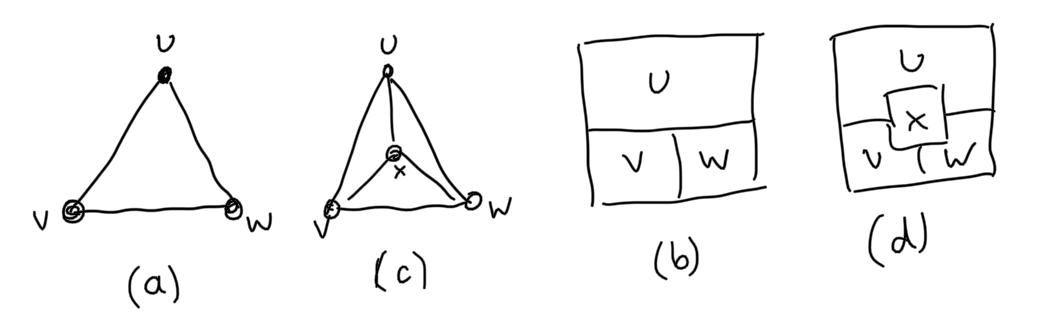 U
V
W
(a)
U
X
V
W
(c)
U
V W
(b)
U
X
V W
(d)